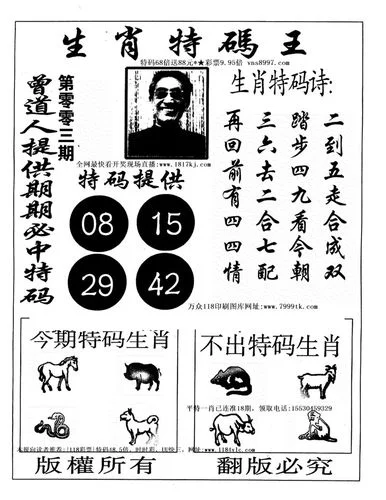 生肖特碼王
特码68倍送88元★★彩票9.95倍 vns8997.com
第零零三期
曾道人提供期期必中特码
全网最快看开奖现场直播:www.1817kj.com
特码提供
08
15
29
42
生肖特码诗:
二到五走合成双
踏步四九看今朝
三六去二合七配
再回前有四四情
万众118印刷图库网址:www.7999tk.com
今期特码生肖
不出特码生肖
平特一肖已连准18期,领取电话:15530459329
版權所有
翻版必究